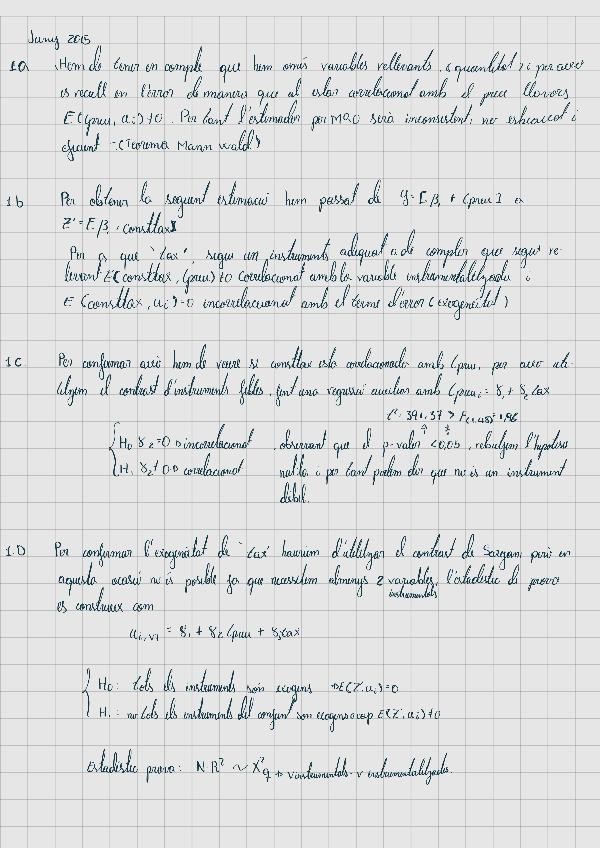 Juny 2015
1a Hem de tenir en compte que hem omès variables rellevants (quantitat) i per això
es recull en l'error de manera que al estar correlacionat amb el preu llavors
E(lpreu, ui)≠0. Per tant l'estimador per MQO serà inconsistent, no esbiaixat i
eficient (Teorema Mann Wald)
1b Per obtenir la seguent estimació hem passat de y=[β, + lpreu] a
Z'=[β, consttax]
Per a que "tax" sigui un instruments adequat a de complir que sigui re-
llevant E(consttax, lpreu)≠0 correlacionat amb la variable instrumentalitzada i
E(consttax, ui)=0 incorrelacionat amb el terme d'error (exogeneitat)
1c Per confirmar això hem de veure si consttax està correlacionada amb lpreu, per això uti-
litzem el contrast d'instruments febles, fent una regressió auxiliar amb lpreui = γ1 + γ2 tax
391.37 > F(1,48) 1.96
H0 γ2=0 incorrelacional observant que el p-valor <0,05, rebutjem l'hipotesi
H1 γ2≠0 correlacional nul·la i per tant podem dir que no és un instrument
dèbil.
1.D Per confirmar l'exogeneïtat de "tax" hauriem d'utilitzar el contrast de Sargan, però en
aquesta ocasió no és posible ja que necessitem almenys 2 variables, l'estadistic de prova
instrumentals
es construeix com
ui,VI = γ1 + γ2 lpreu + γ3 tax
H0: tots els instruments són exogens → E(Z, ui)=0
H1: no tots els instruments del conjunt son exogens E(Z, ui)≠0
Estadístic prova: N R² ~ X²q → v instrumentals - v instrumentalitzades.